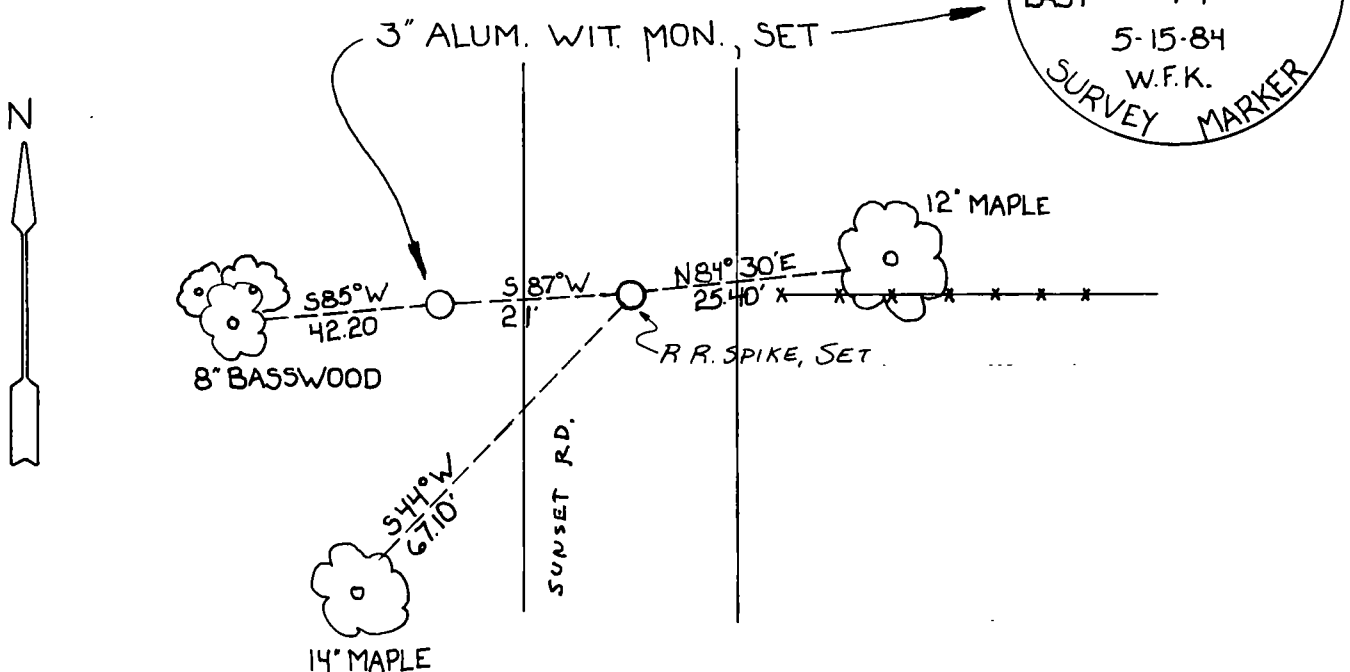 3" ALUM. WIT. MON., SET
EAST
5-15-84
W.F.K.
SURVEY MARKER
N
12" MAPLE
S85°W
42.20
S 87°W
21'
N84°30'E
25.40'
R R. SPIKE, SET
8" BASSWOOD
S44°W
67.10'
SUNSET RD.
14" MAPLE